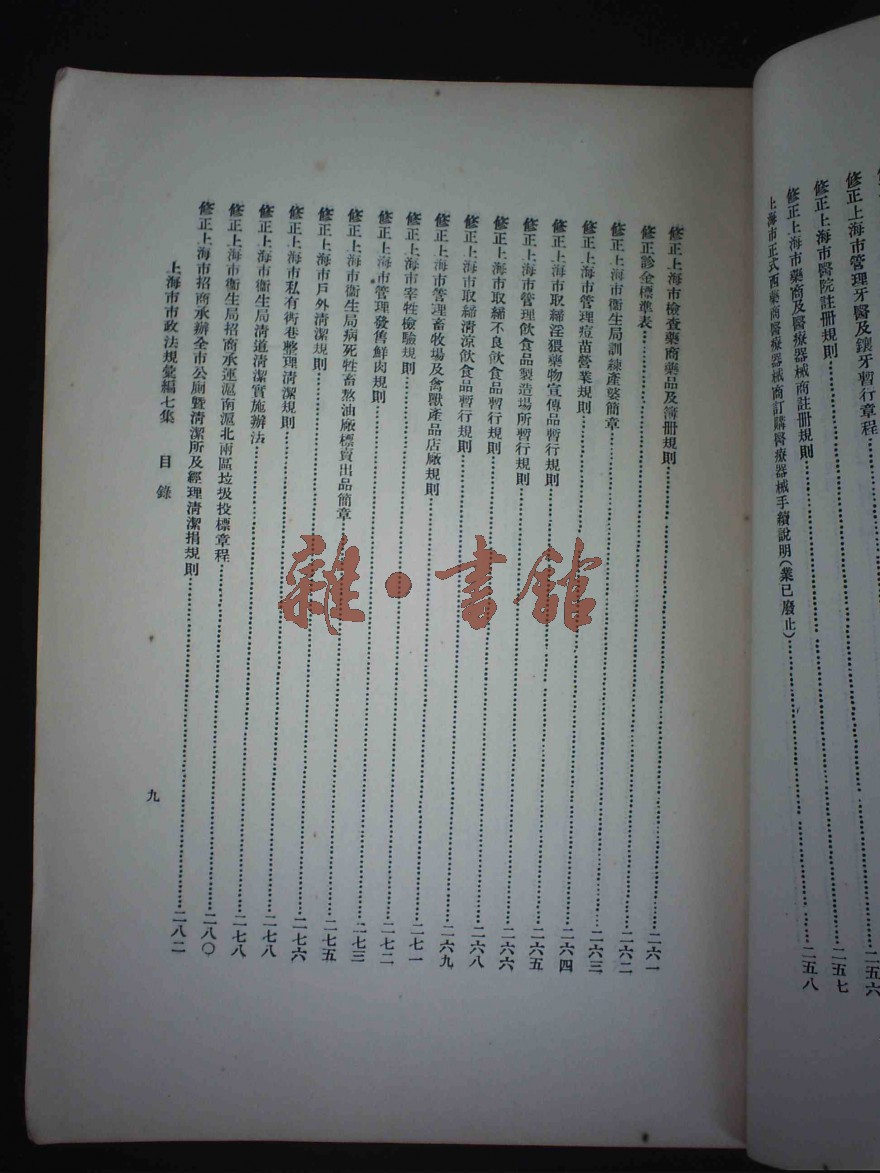 修正上海市管理牙醫及鑲牙暫行章程……二五六
修正上海市醫院註冊規則……二五七
修正上海市藥商及醫療器械商註冊規則……二五八
上海市正式西藥商醫療器械商訂購醫療器械手續說明(業已廢止)……
修正上海市檢查藥商藥品及簿冊規則……二六一
修正診金標準表……二六二
修正上海市衞生局訓練產婆簡章……二六三
修正上海市管理痘苗營業規則……二六四
修正上海市取締淫猥藥物宣傳品暫行規則……二六五
修正上海市管理飲食品製造場所暫行規則……二六六
修正上海市取締不良飲食品暫行規則……二六八
修正上海市取締清涼飲食品暫行規則……二六九
修正上海市管理畜牧場及禽獸產品店廠規則……二七一
修正上海市宰牲檢驗規則……二七二
修正上海市管理發售鮮肉規則……二七三
修正上海市衞生局病死牲畜熬油廠標賣出品簡章……二七五
修正上海市戶外清潔規則……二七六
修正上海市私有衖巷整理清潔規則……二七八
修正上海市衞生局清道清潔實施辦法……二七八
修正上海市衞生局招商承運滬南滬北兩區垃圾投標章程……二八〇
修正上海市招商承辦全市公厠暨清潔所及經理清潔捐規則……二八二
上海市市政法規彙編七集 目錄
九
雜·書館